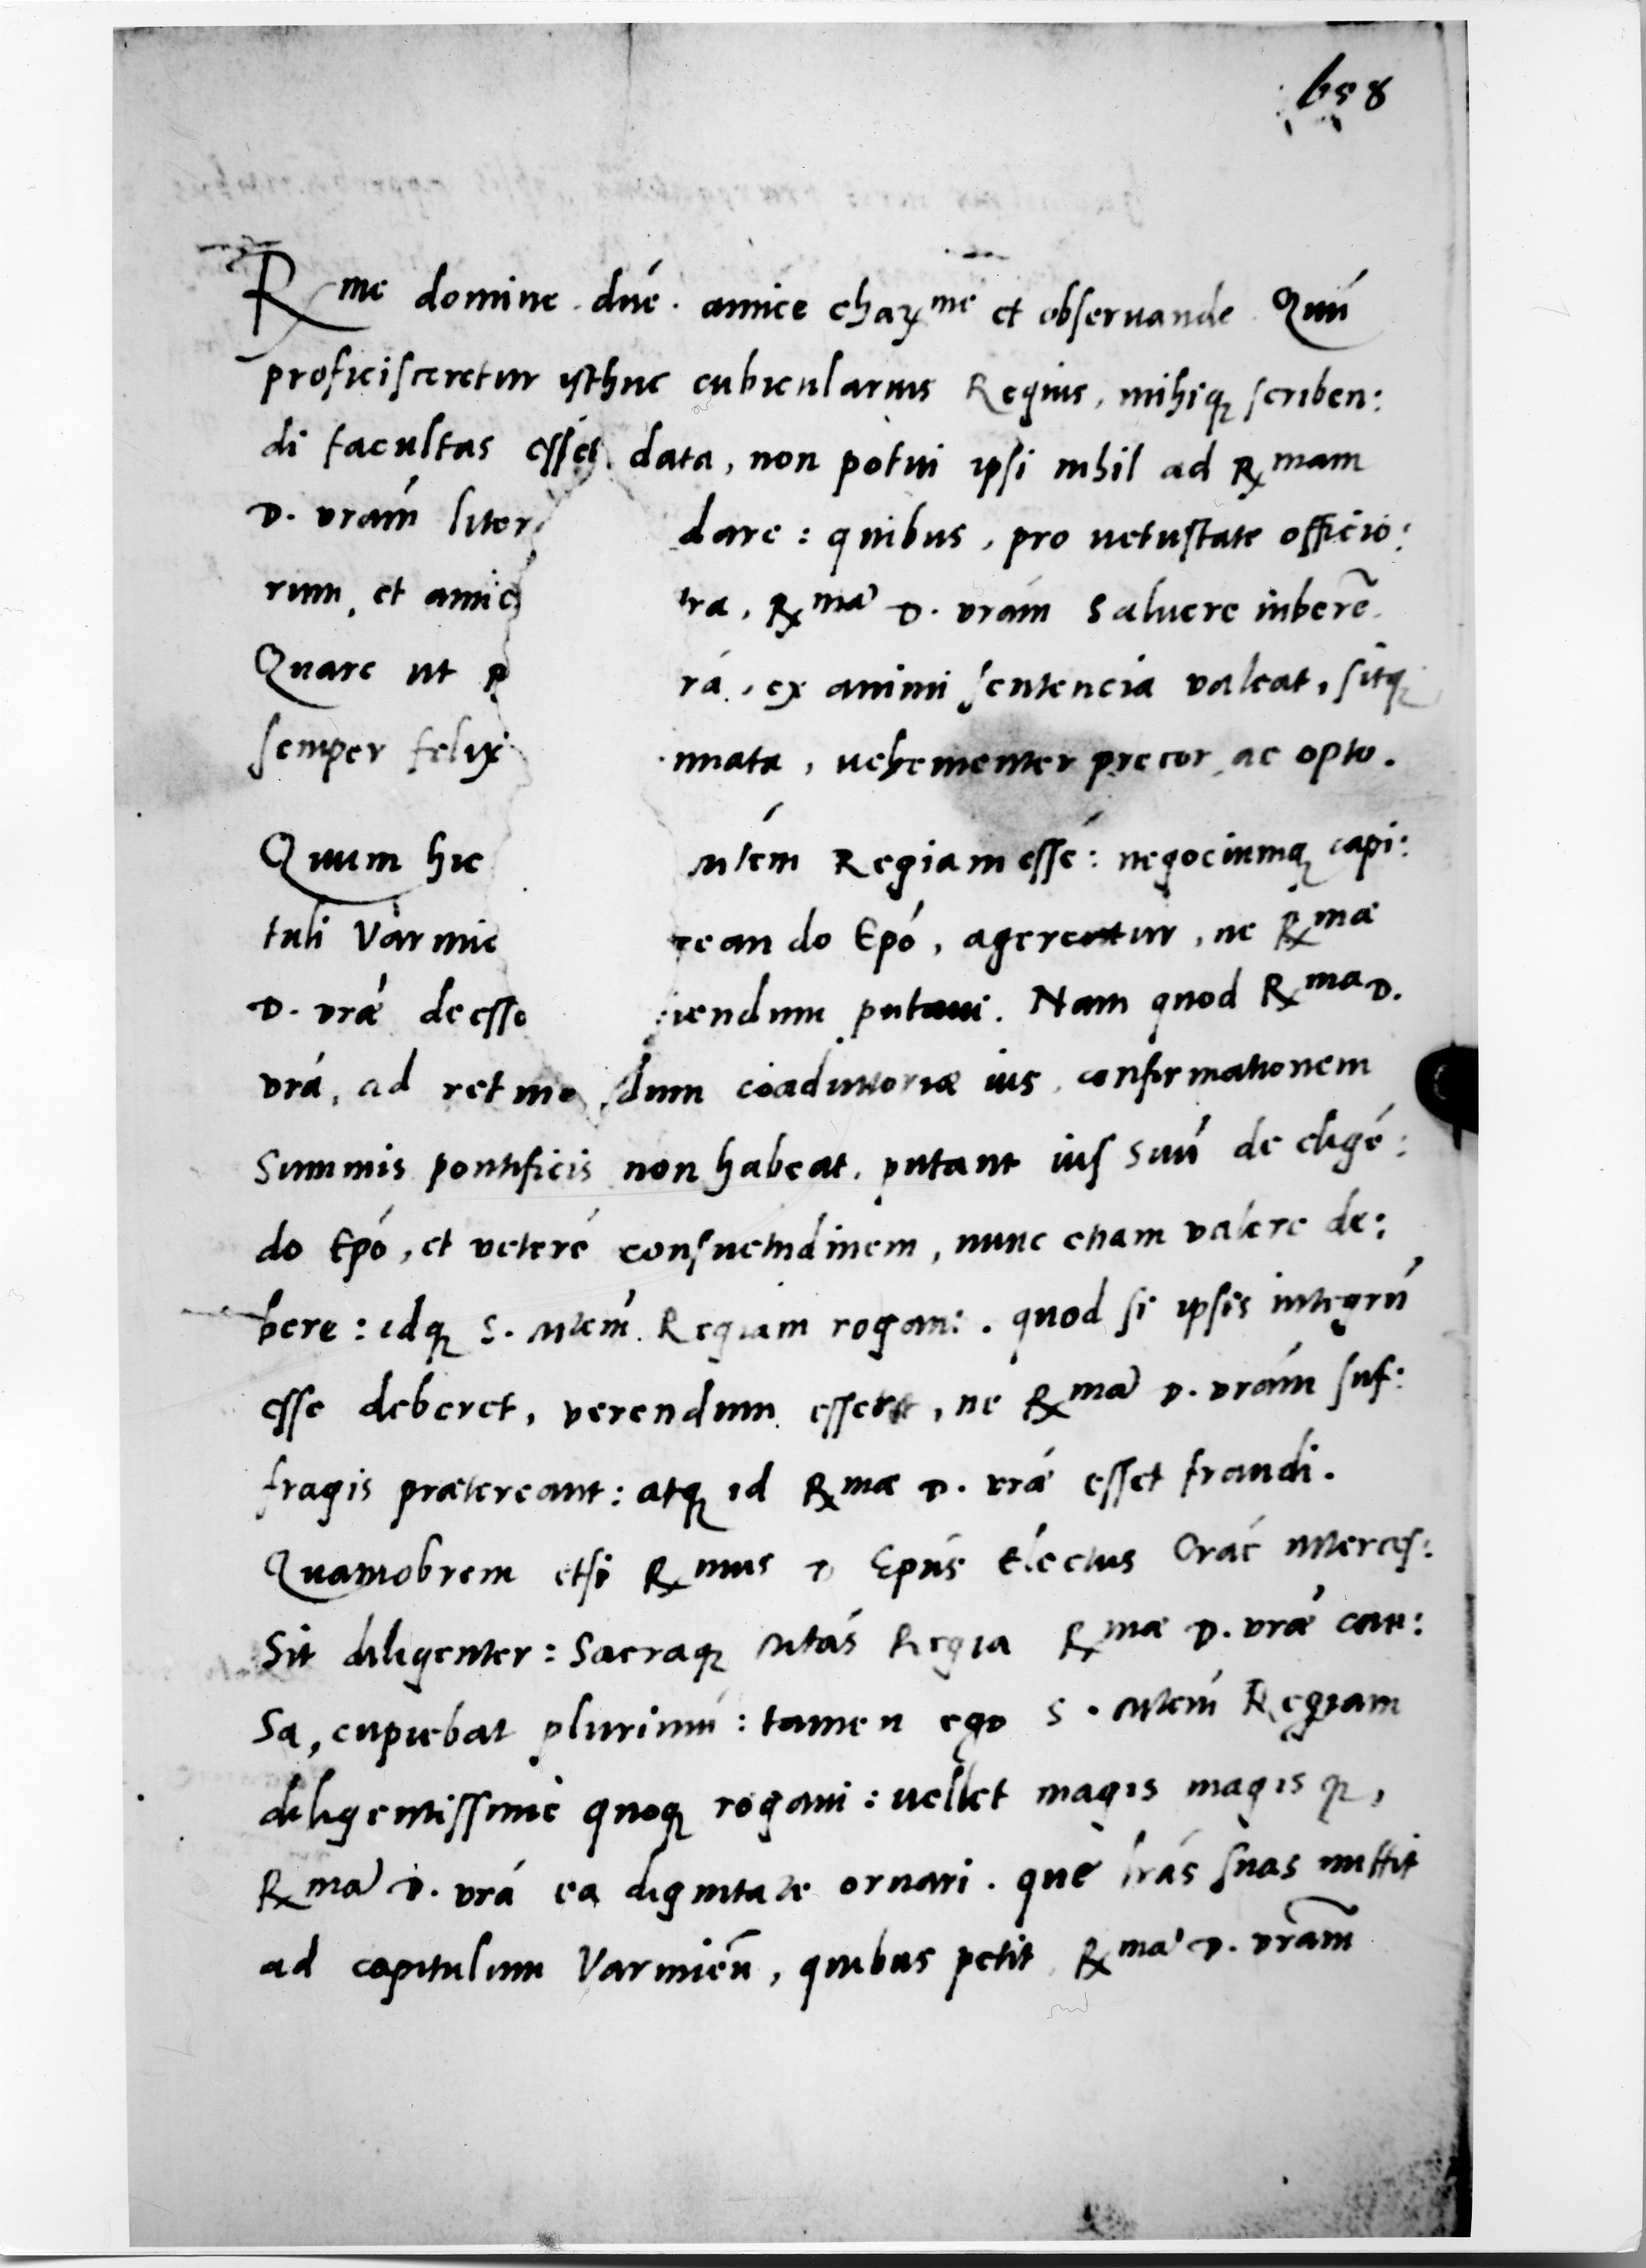 658
Rme domine dne. amice charme et obseruande Quu
proficisceretur ysthuc cubicularius Regius, mihiq scriben:
di facultas esset data, non potui ipsi nihil ad Rmam
D. vram liter dare: quibus, pro uetustate officio:
rum, et amic tra, Rma D. vram Saluere iubere
Quare ut p ra, ex animi sentencia valeat, sitq
semper felix nnata, uehementer precor ac opto.
Quum hic Mtem Regiam esse: negociumq capi:
tuli Varmie reando Epo, ageretur, ne Rmae
D. vrae deesse iendum putaui. Nam quod Rma D.
vra, ad retine dum coadiutoriae ius, confirmationem
Summis pontificis non habeat, putant ius suu de elige:
do Epo, et vetere consuetudinem, nunc etiam valere de:
bere: idq S. Mtem Regiam rogant. quod si ipsis integru
esse deberet, verendum esset, ne Rma D. vram suf:
fragis praetereant: atq id Rmae D. vrae esset fraudi.
Quamobrem etsi Rmus D Epus Electus Crac interces:
Sit diligenter: Sacraq Mtas Regia Rmae D. vrae cau:
Sa, cupiebat plurimu: tamen ego S. Mtem Regiam
diligentissime quoq rogaui: uellet magis magisq,
Rma D. vra ea dignitate ornari. que lras suas mittit
ad capitulum Varmien, quibus petit Rma D. vram